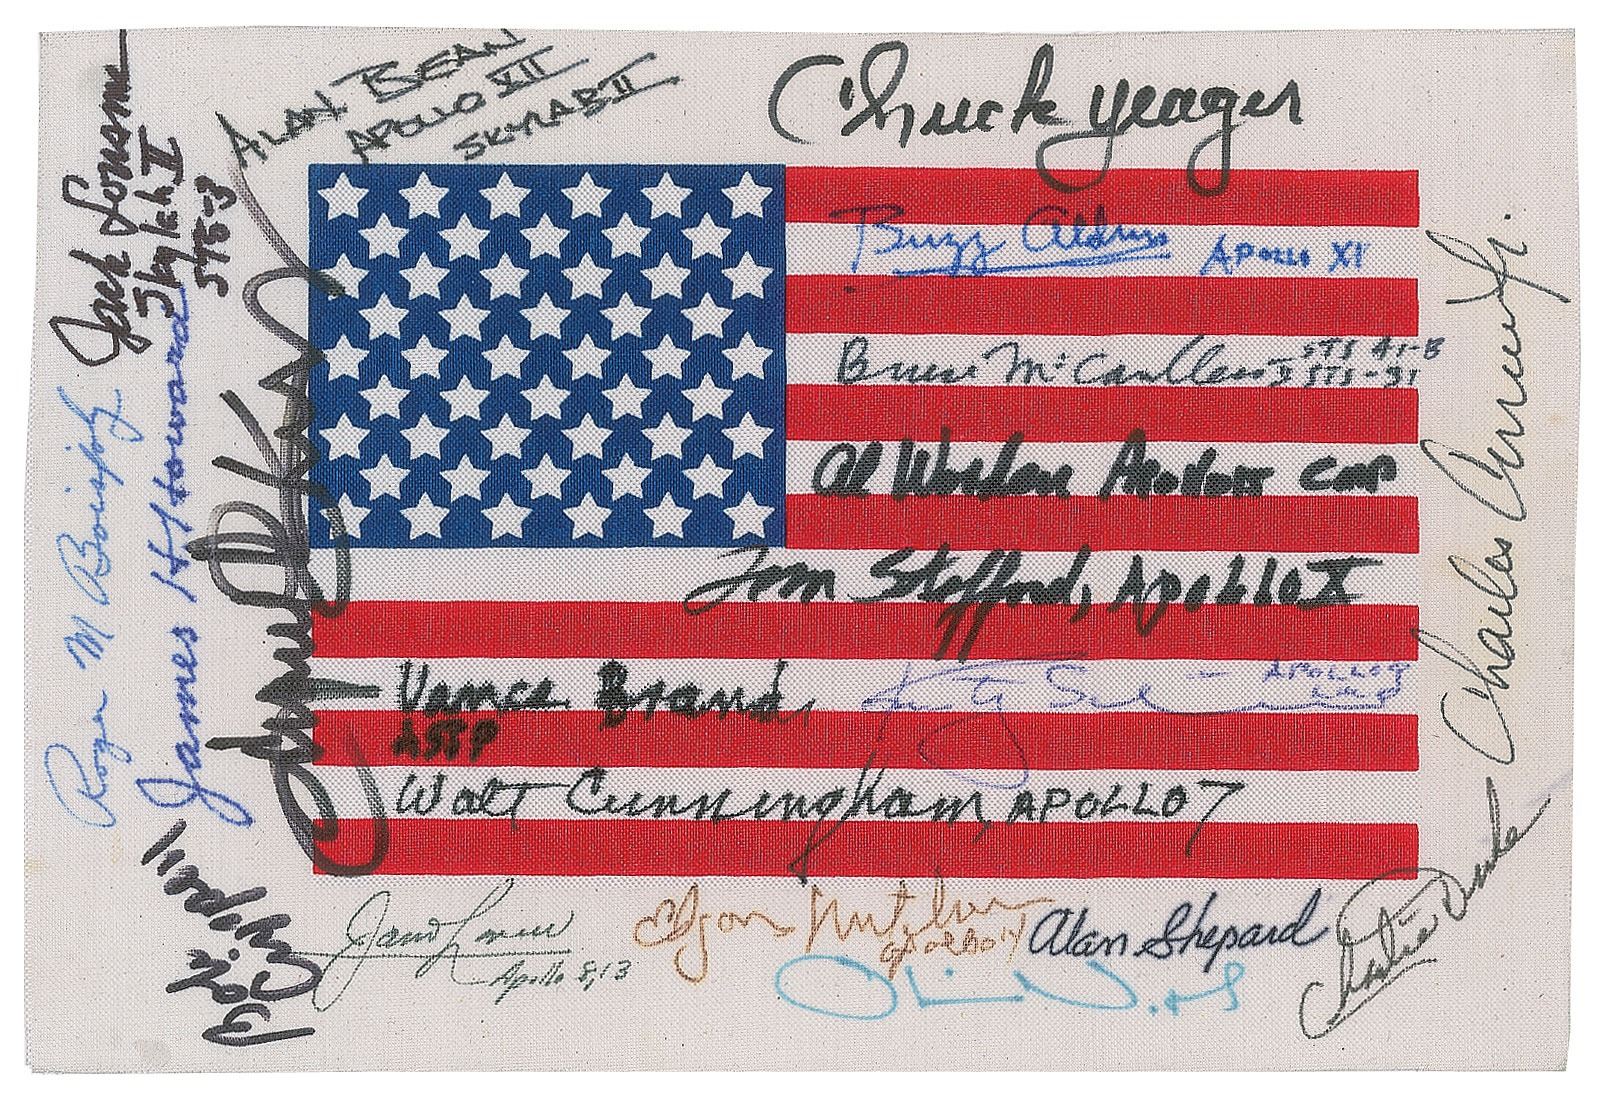 ALAN BEAN
APOLLO XII
SKYLAB II
Chuck Yeager
Jack Lousma
Skylab II
STS-3
Buzz Aldrin APOLLO XI
Bruce McCandless II STS 41-B
STS-31
Al Worden Apollo 15 CMP
Tom Stafford, Apollo X
Vance Brand,
ASTP
APOLLO 9
LMP
Walt Cunningham, APOLLO 7
Roger M Boisjoly
James H Howard
James Lovell
Apollo 8, 13
Edgar Mitchell
Apollo 14
Alan Shepard
Charlie Duke
Charles
Jr.